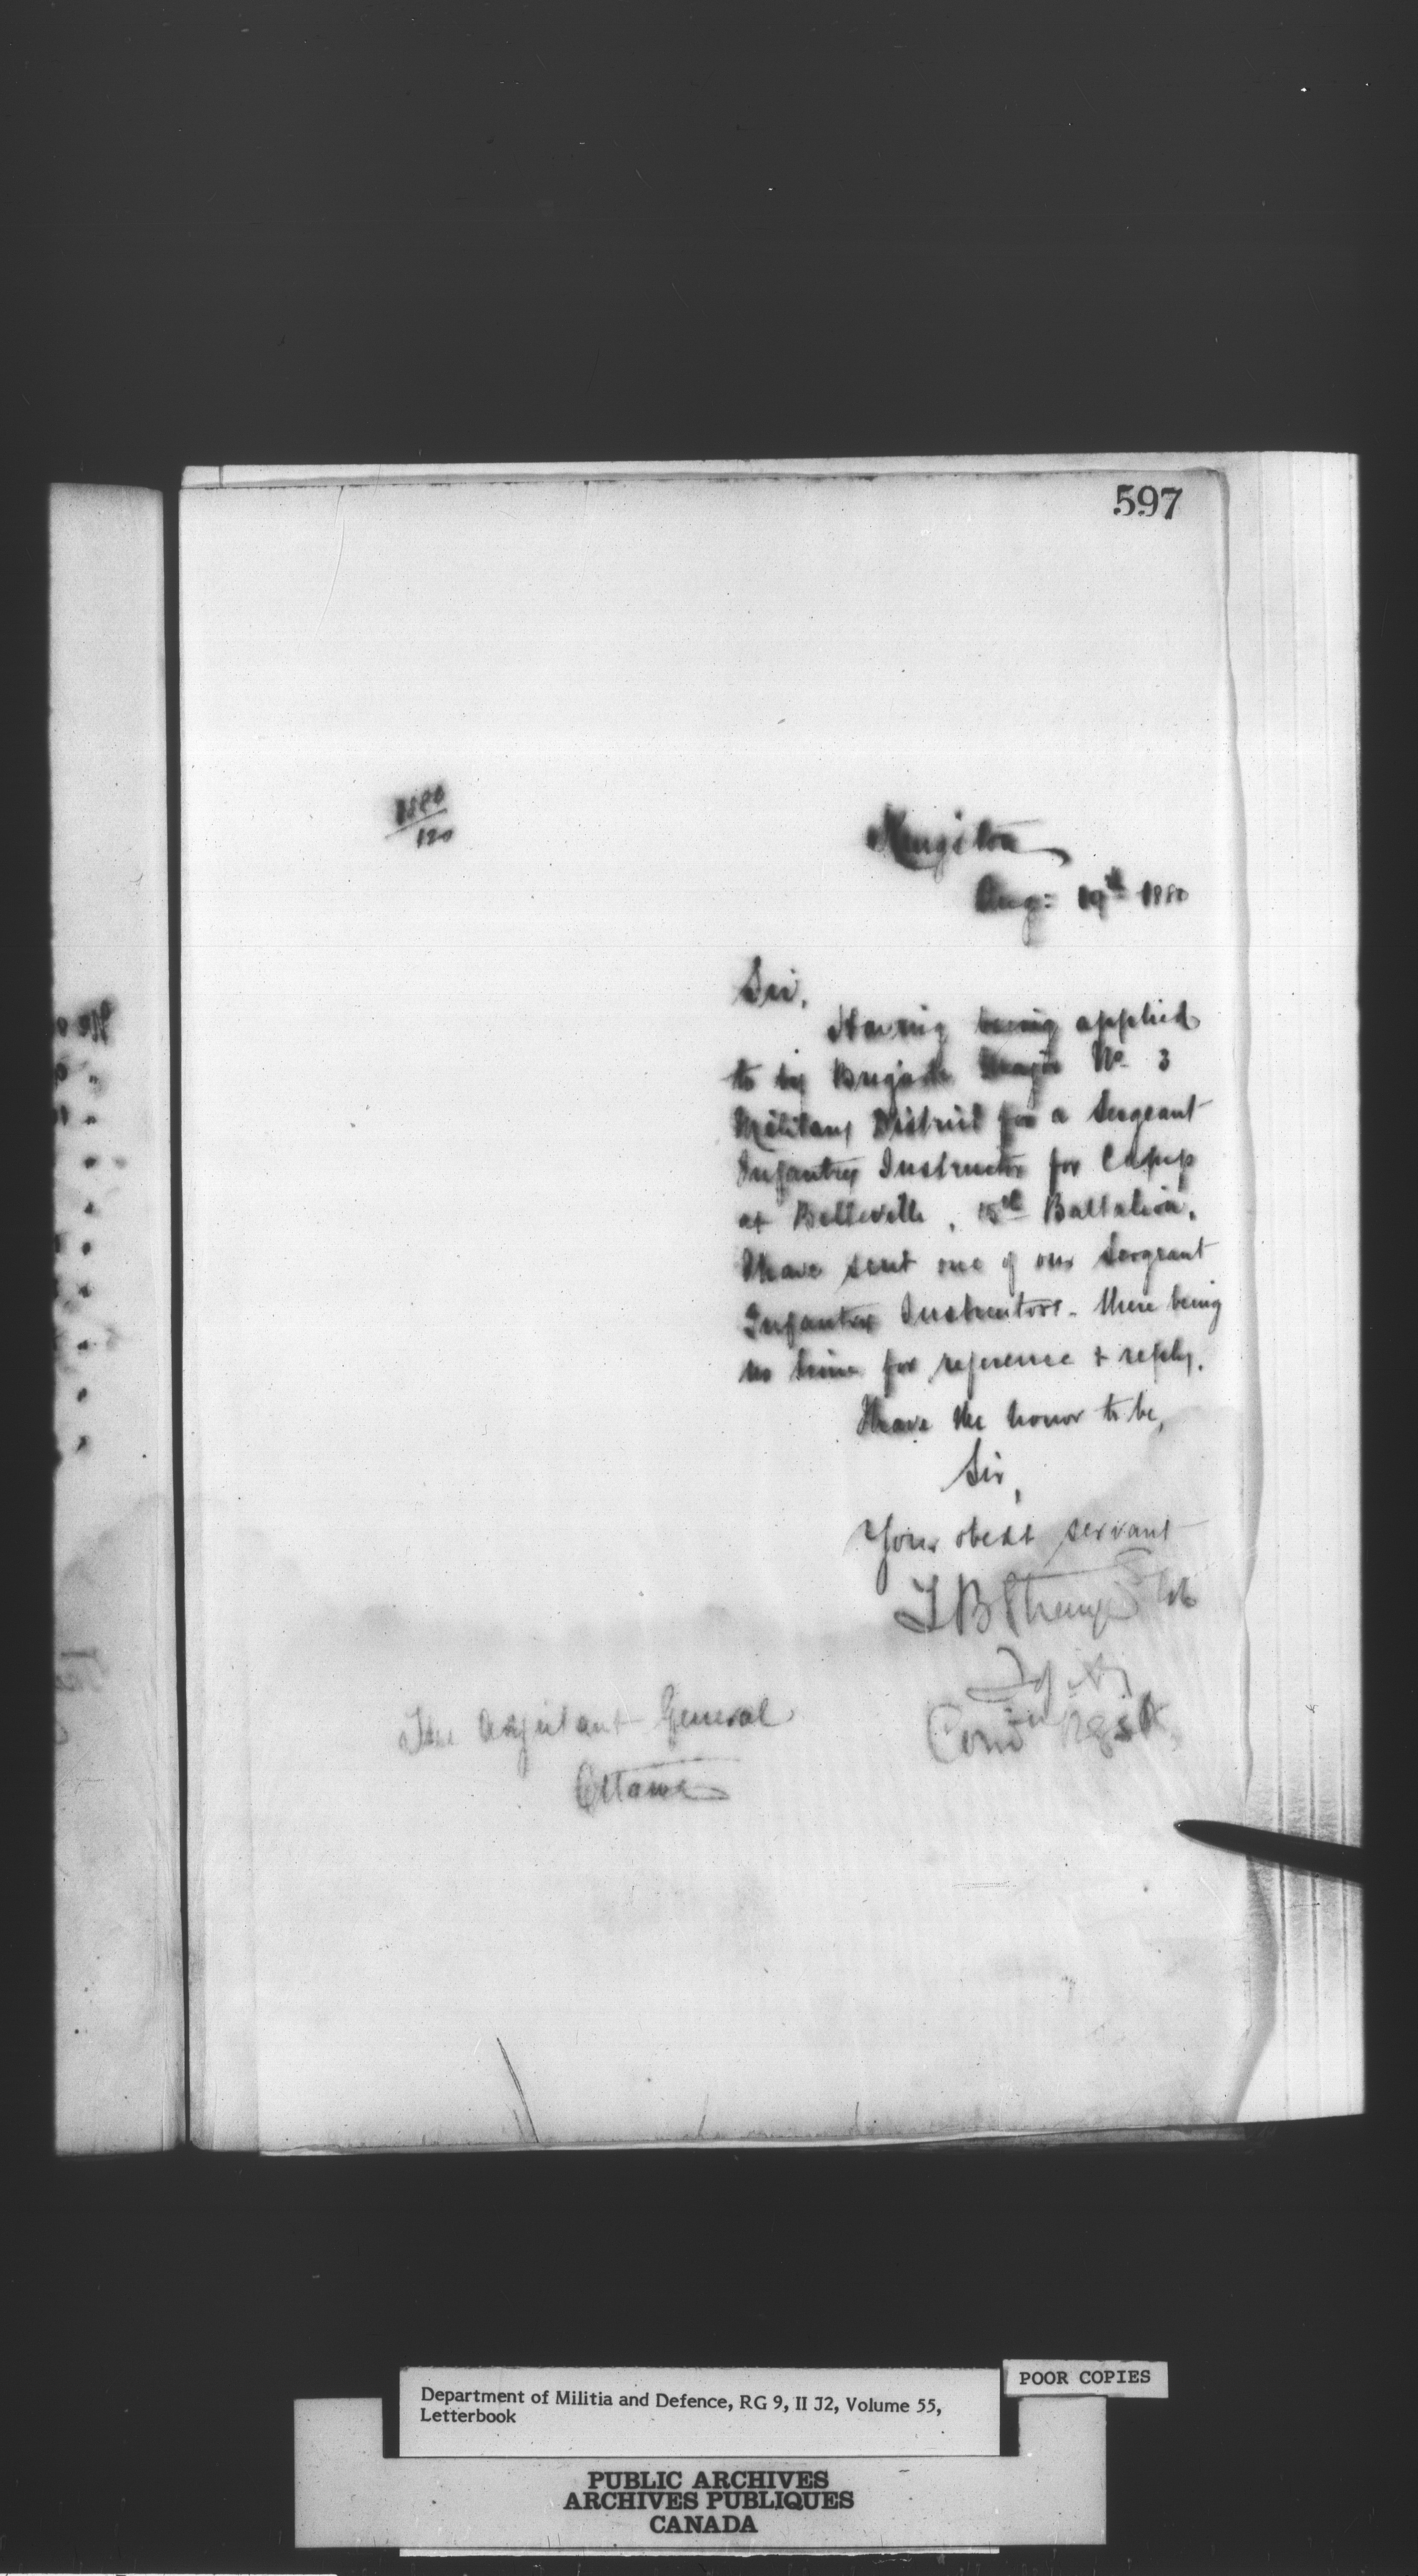 597
1880
120
Kingston
Aug: 19th 1880
Sir,
Having being applied
to by Brigade Major No. 3
Military District for a Sergeant
Infantry Instructor for Camp
at Belleville, 15th Battalion,
I have sent one of our Sergeant
Infantry Instructors - there being
no time for reference & reply.
I have the honor to be,
Sir,
Your obedt servant
T B Strange
The Adjutant General
Ottawa
POOR COPIES
Department of Militia and Defence, RG 9, II J2, Volume 55,
Letterbook
PUBLIC ARCHIVES
ARCHIVES PUBLIQUES
CANADA